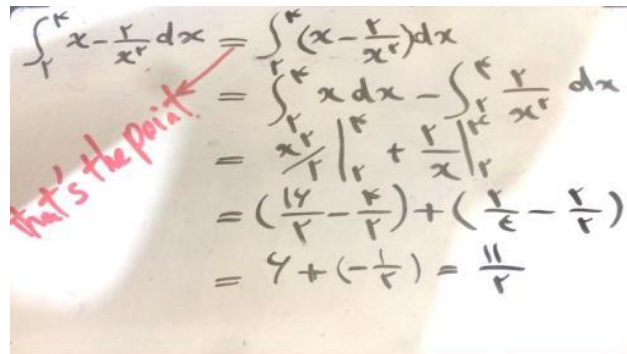 ∫_۲^۴ x - ۲/x^۲ dx = ∫_۲^۴ (x - ۲/x^۲) dx
= ∫_۲^۴ x dx - ∫_۲^۴ ۲/x^۲ dx
= x^۲/۲ |_۲^۴ + ۲/x |_۲^۴
= (۱۶/۲ - ۴/۲) + (۲/۴ - ۲/۲)
= ۶ + (-۱/۲) = ۱۱/۲
that's the point.